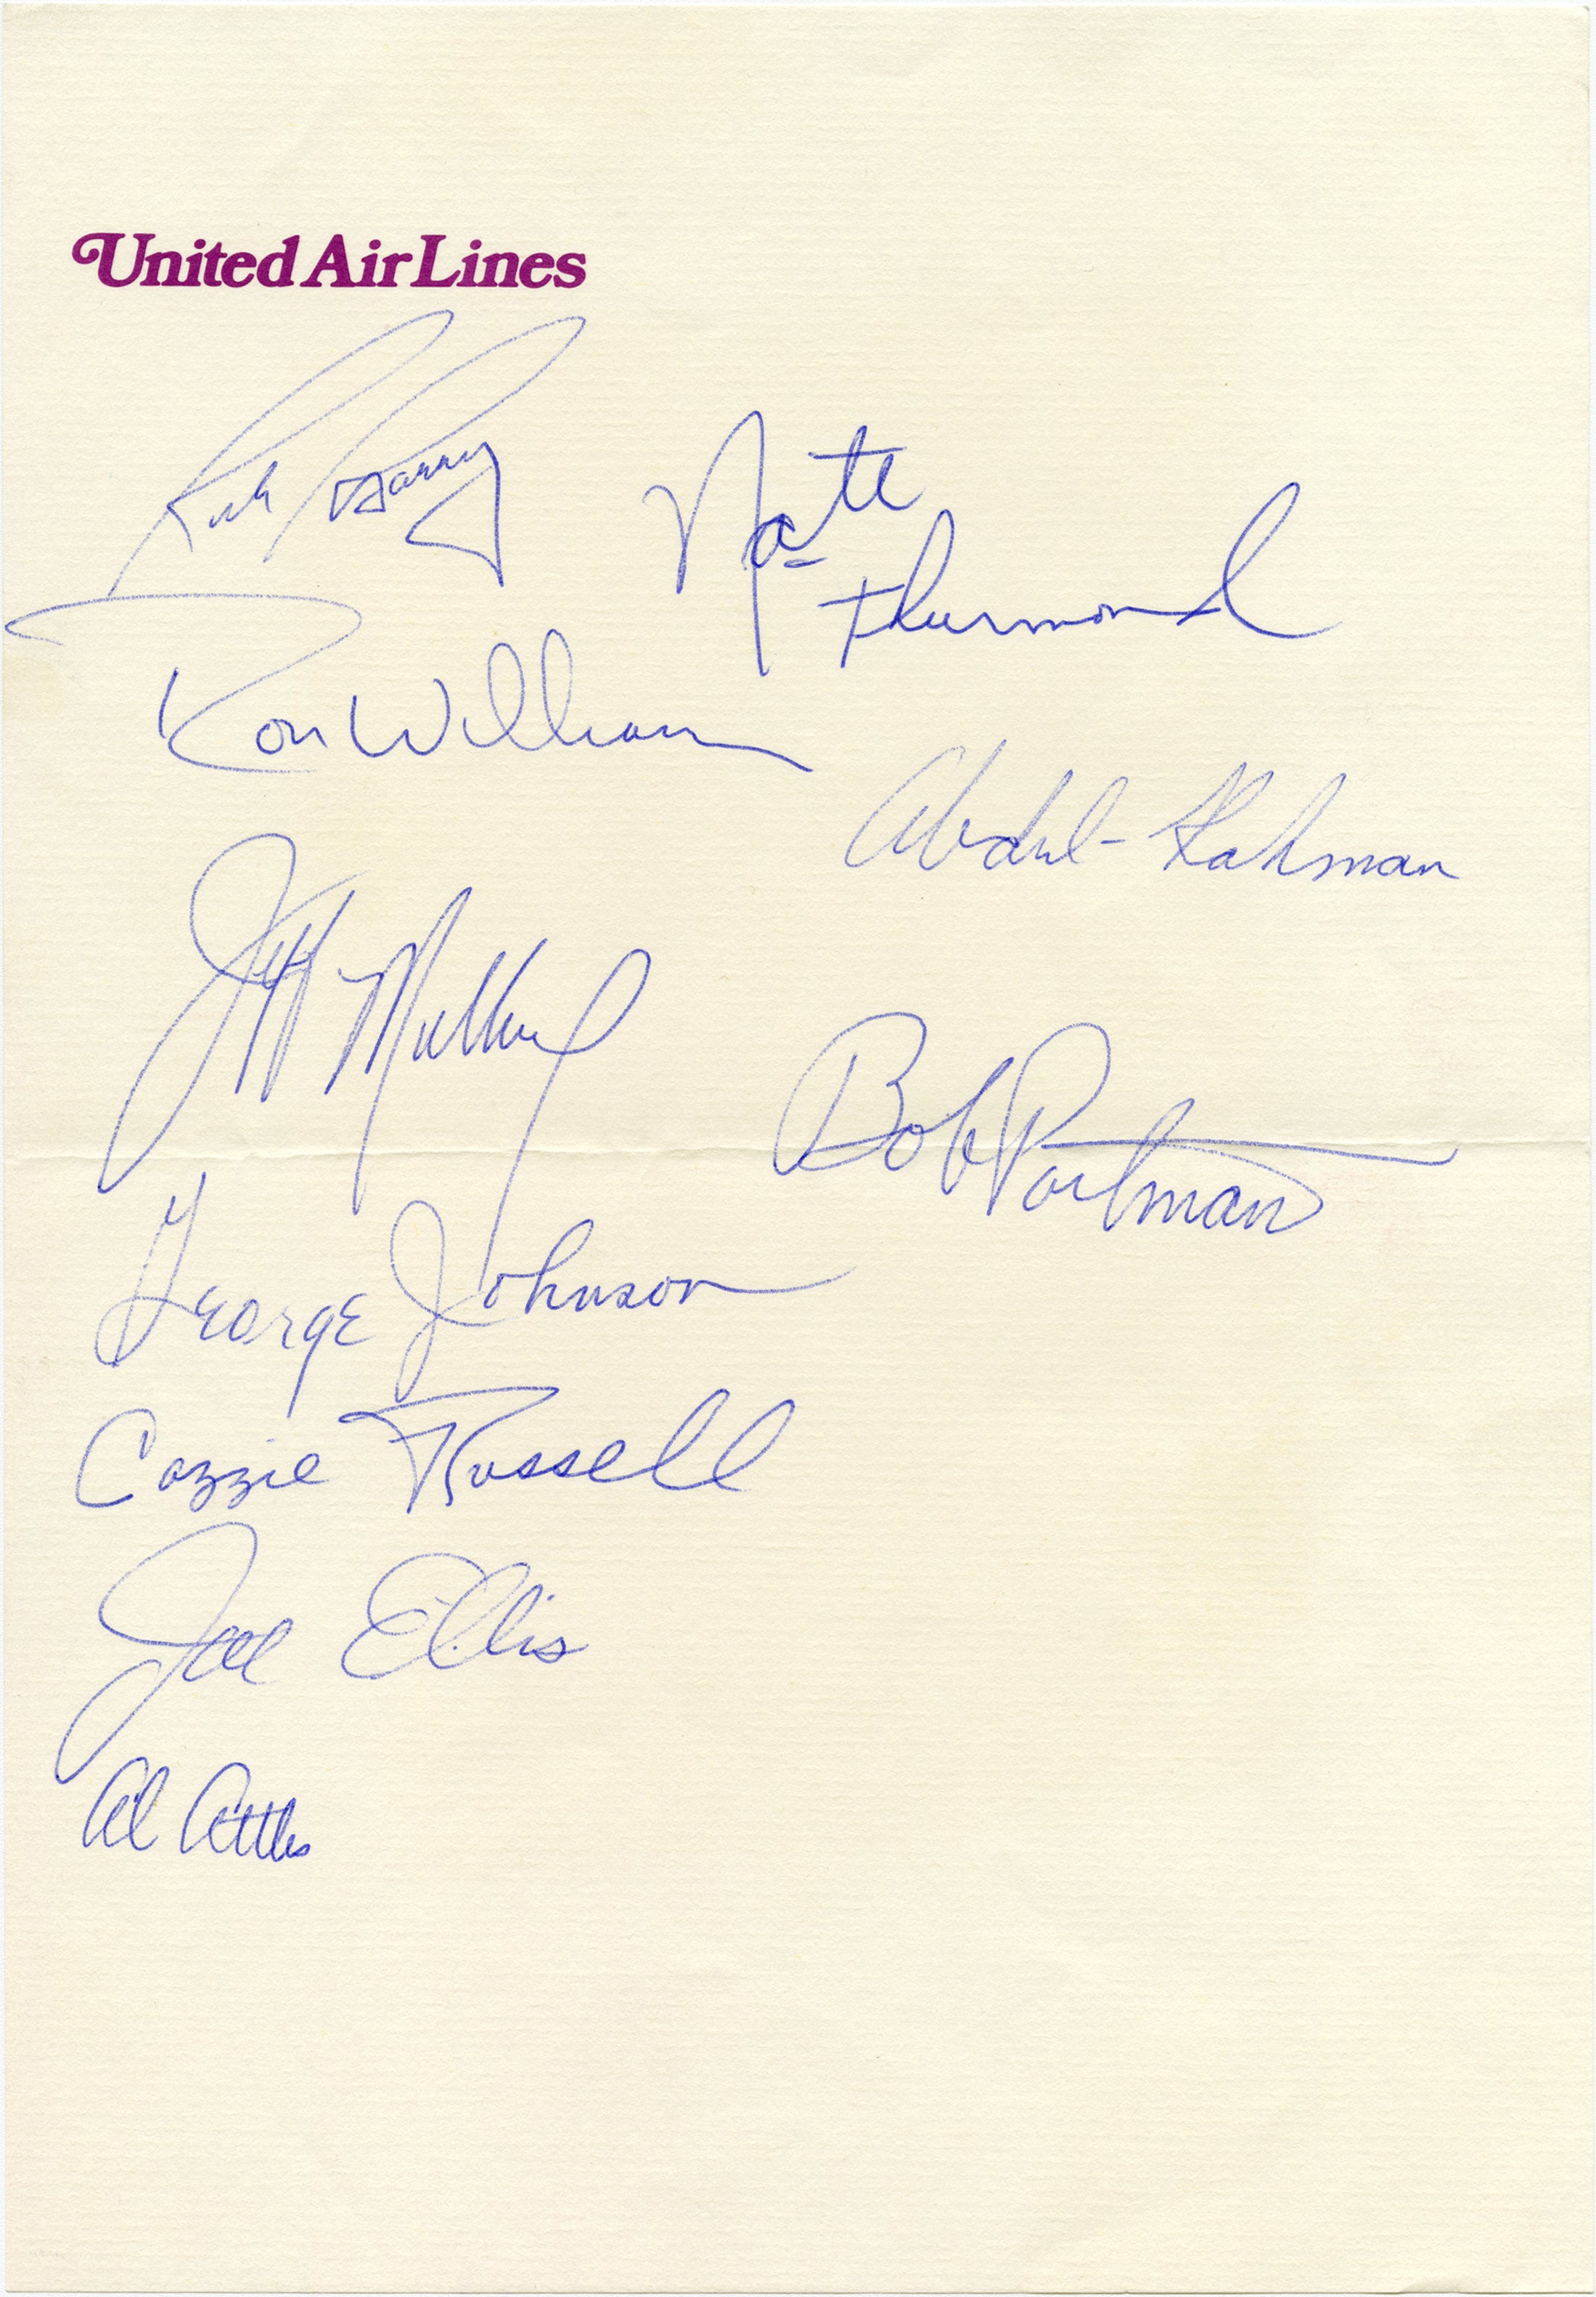 United Air Lines
Rick Barry
Nate
Thurmond
Ron Williams
Abdul-Rahman
Jeff Mullins
Bob Portman
George Johnson
Cazzie Russell
Joe Ellis
Al Attles